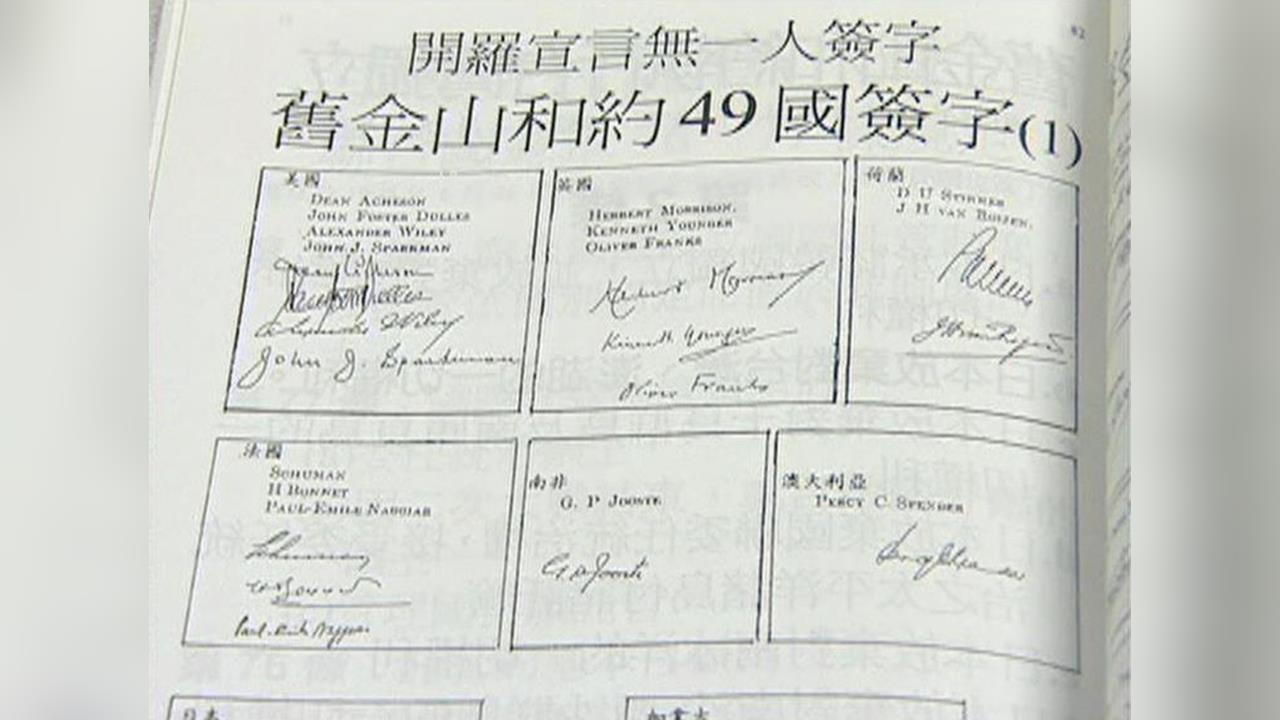 開羅宣言無一人簽字
舊金山和約49國簽字(1)
美國
DEAN ACHESON
JOHN FOSTER DULLES
ALEXANDER WILEY
JOHN J. SPARKMAN
John J. Sparkman
英國
HERBERT MORRISON.
KENNETH YOUNGER
OLIVER FRANKS
Herbert Morrison
Kenneth Younger
Oliver Franks
荷蘭
D U STIKKER
J H VAN ROIJEN.
法國
SCHUMAN
H BONNET
PAUL-EMILE NAGGIAR
南非
G. P JOOSTE
澳大利亞
PERCY C. SPENDER
日本
加拿大